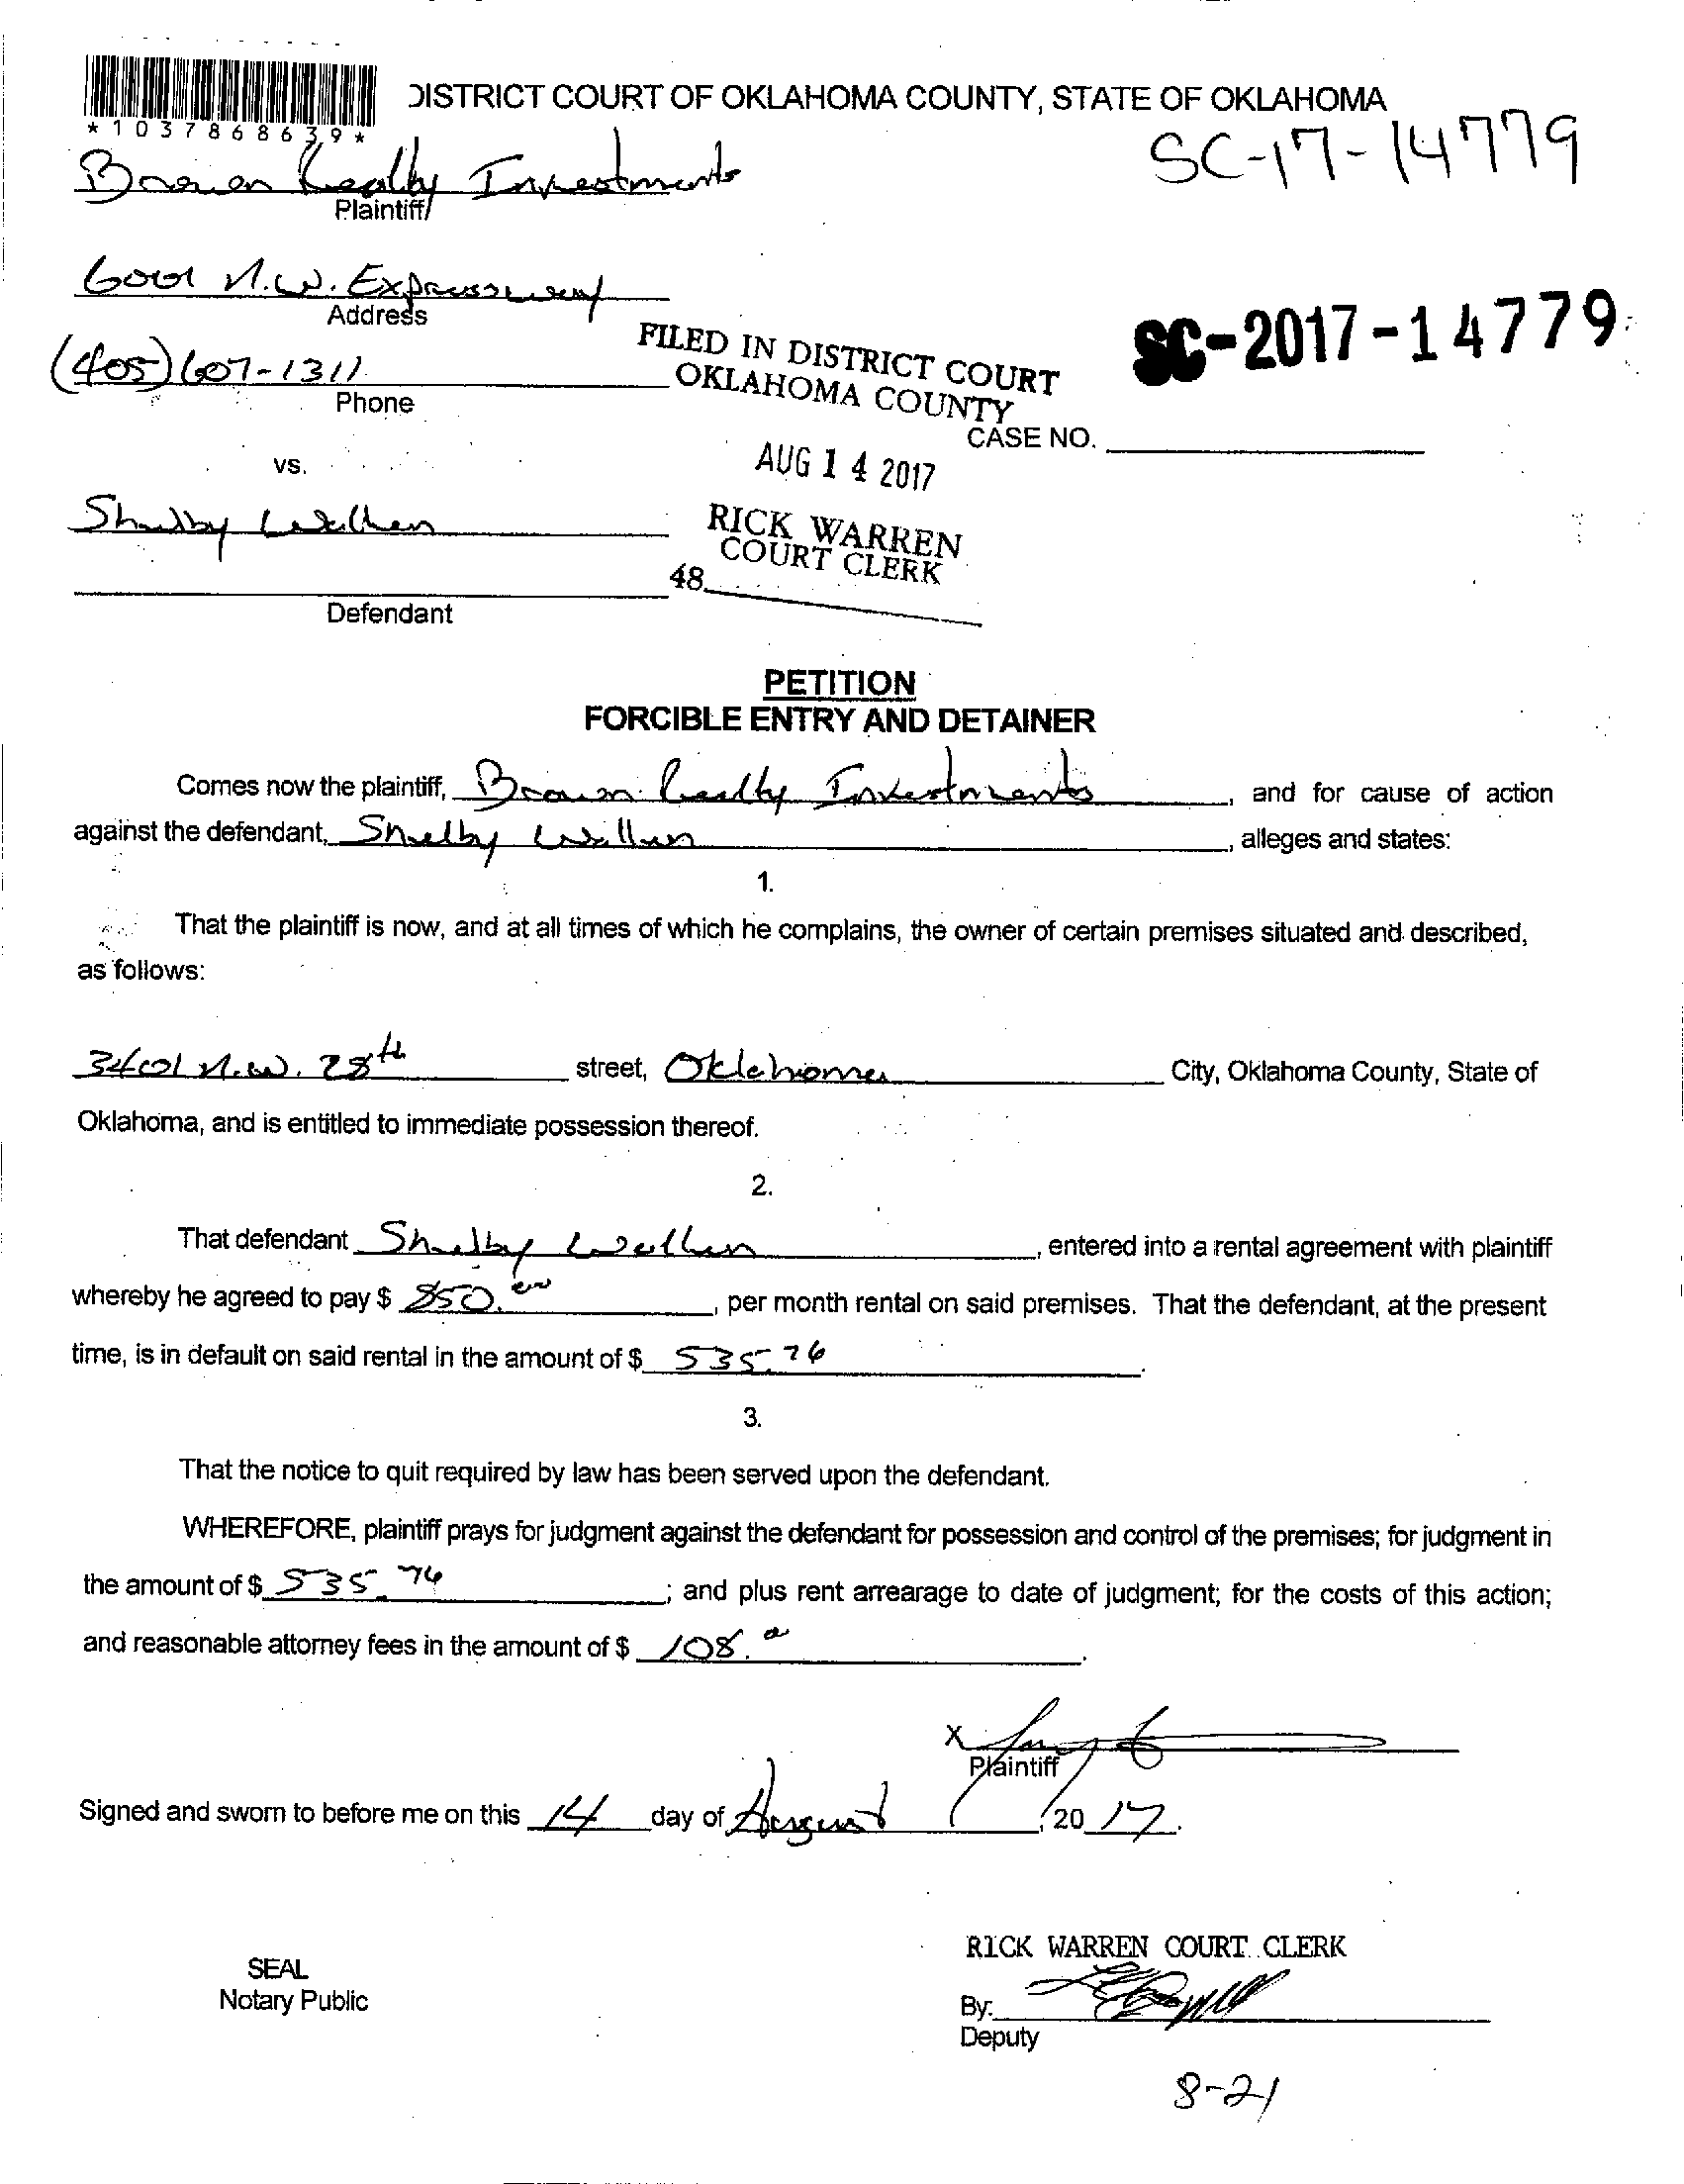 DISTRICT COURT OF OKLAHOMA COUNTY, STATE OF OKLAHOMA
*1037868639*
SC-17-14779
Brown Realty Investments
Plaintiff
6001 N.W. Expressway
Address
SC-2017-14779
FILED IN DISTRICT COURT
OKLAHOMA COUNTY
(405) 607-1311
Phone
CASE NO.
AUG 14 2017
vs.
Shelby
RICK WARREN
COURT CLERK
48
Defendant
PETITION
FORCIBLE ENTRY AND DETAINER
Comes now the plaintiff, Brown Realty Investments, and for cause of action
against the defendant, Shelby, alleges and states:
1.
That the plaintiff is now, and at all times of which he complains, the owner of certain premises situated and described,
as follows:
3401 N.W. 28th street, Oklahoma City, Oklahoma County, State of
Oklahoma, and is entitled to immediate possession thereof.
2.
That defendant Shelby, entered into a rental agreement with plaintiff
whereby he agreed to pay $ 850.00, per month rental on said premises. That the defendant, at the present
time, is in default on said rental in the amount of $ 535.76.
3.
That the notice to quit required by law has been served upon the defendant.
WHEREFORE, plaintiff prays for judgment against the defendant for possession and control of the premises; for judgment in
the amount of $ 535.76; and plus rent arrearage to date of judgment; for the costs of this action;
and reasonable attorney fees in the amount of $ 108.
X
Plaintiff
Signed and sworn to before me on this 14 day of August, 20 17.
RICK WARREN COURT CLERK
SEAL
Notary Public
By:
Deputy
8-21